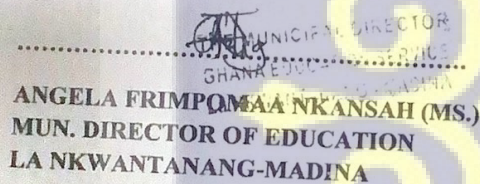 THE MUNICIPAL DIRECTOR
GHANA EDUCATION SERVICE
ANGELA FRIMPOMAA NKANSAH (MS.)
MUN. DIRECTOR OF EDUCATION
LA NKWANTANANG-MADINA